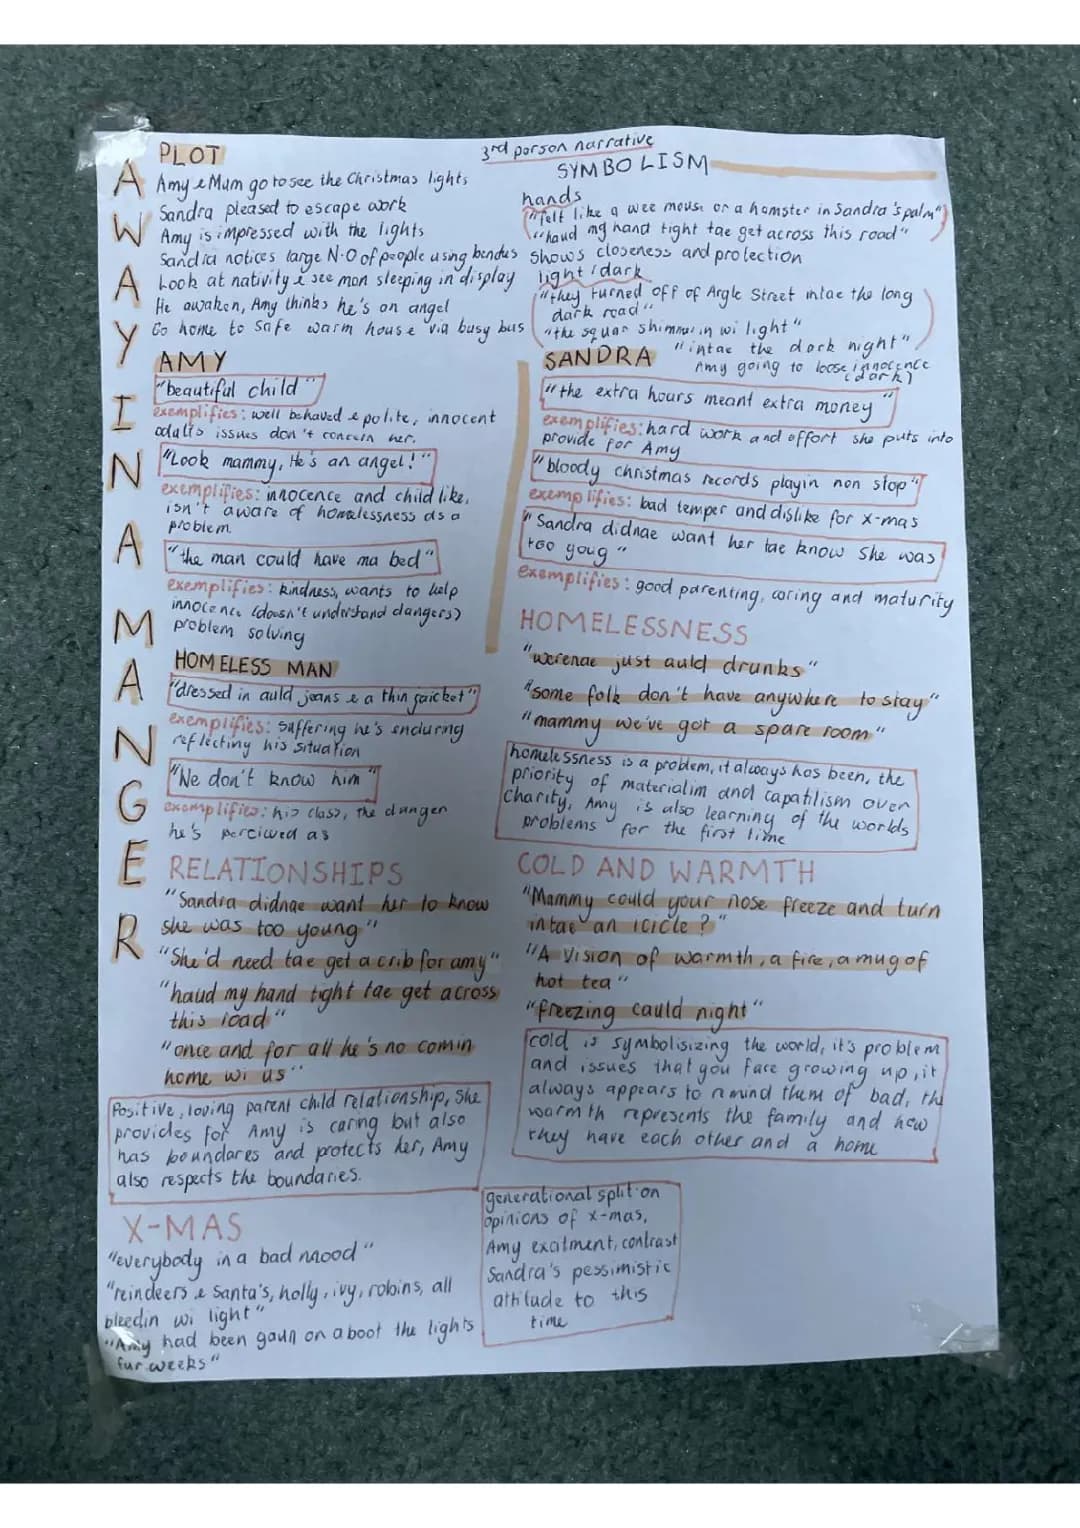 AWAY IN A MANGER
3rd person narrative
PLOT
Amy & Mum go to see the Christmas lights
Sandra pleased to escape work
Amy is impressed with the lights
Sandra notices large N.O of people using bendus
Look at nativity & see man sleeping in display
He awaken, Amy thinks he's an angel
Go home to safe warm house via busy bus
AMY
"beautiful child"
exemplifies: well behaved & polite, innocent
adults issues don't concern her.
"Look mammy, He's an angel!"
exemplifies: innocence and child like,
isn't aware of homelessness as a
problem.
"the man could have ma bed"
exemplifies: kindness, wants to help
innocence (doesn't understand dangers)
problem solving
HOMELESS MAN
"dressed in auld jeans & a thin jaicket"
exemplifies: suffering he's enduring
reflecting his situation
"We don't know him"
exemplifies: his class, the danger
he's percieved as
RELATIONSHIPS
"Sandra didnae want her to know
she was too young"
"She'd need tae get a crib for amy"
"haud my hand tight tae get across
this road"
"once and for all he's no comin
home wi us"
Positive, loving parent child relationship, She
provides for Amy is caring but also
has boundares and protects her, Amy
also respects the boundaries.
X-MAS
"everybody in a bad mood"
"reindeers & Santa's, holly, ivy, robins, all
bleedin wi light"
"Amy had been gaun on aboot the lights
fur weeks"
SYMBOLISM
hands
"felt like a wee mouse or a hamster in Sandra's palm"
"haud my hand tight tae get across this road"
shows closeness and protection
light/dark
"they turned off of Argle Street intae the long
dark road"
"the squar shimmur in wi light"
"intae the dark night"
Amy going to loose innocence
(dark)
SANDRA
"the extra hours meant extra money"
exemplifies: hard work and effort she puts into
provide for Amy
"bloody christmas records playin non stop"
exemplifies: bad temper and dislike for x-mas
"Sandra didnae want her tae know she was
too youg"
exemplifies: good parenting, caring and maturity
HOMELESSNESS
"werenae just auld drunks"
"some folk don't have anywhere to stay"
"mammy we've got a spare room"
homelessness is a problem, it always has been, the
priority of materialim and capatilism over
charity, Amy is also learning of the worlds
problems for the first time
COLD AND WARMTH
"Mammy could your nose freeze and turn
intae an icicle?"
"A vision of warmth, a fire, a mug of
hot tea"
"freezing cauld night"
cold is symbolisizing the world, it's problem
and issues that you face growing up, it
always appears to remind them of bad, the
warmth represents the family and how
they have each other and a home
generational split on
opinions of x-mas,
Amy exaitment, contrast
Sandra's pessimistic
attitude to this
time